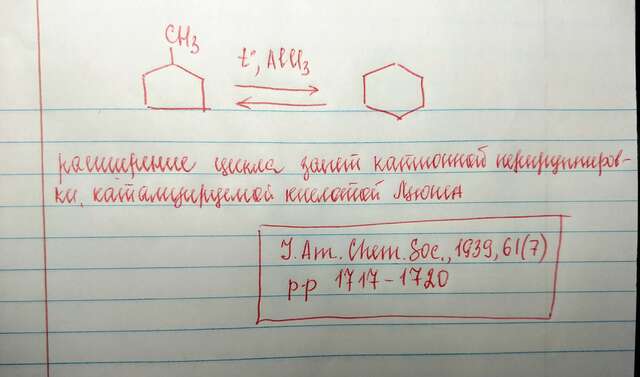 CH3
t°, AlCl3
расширение цикла за счёт катионной перегруппиров-
ки, катализируемой кислотой Льюиса
J. Am. Chem. Soc., 1939, 61(7)
p-p 1717-1720